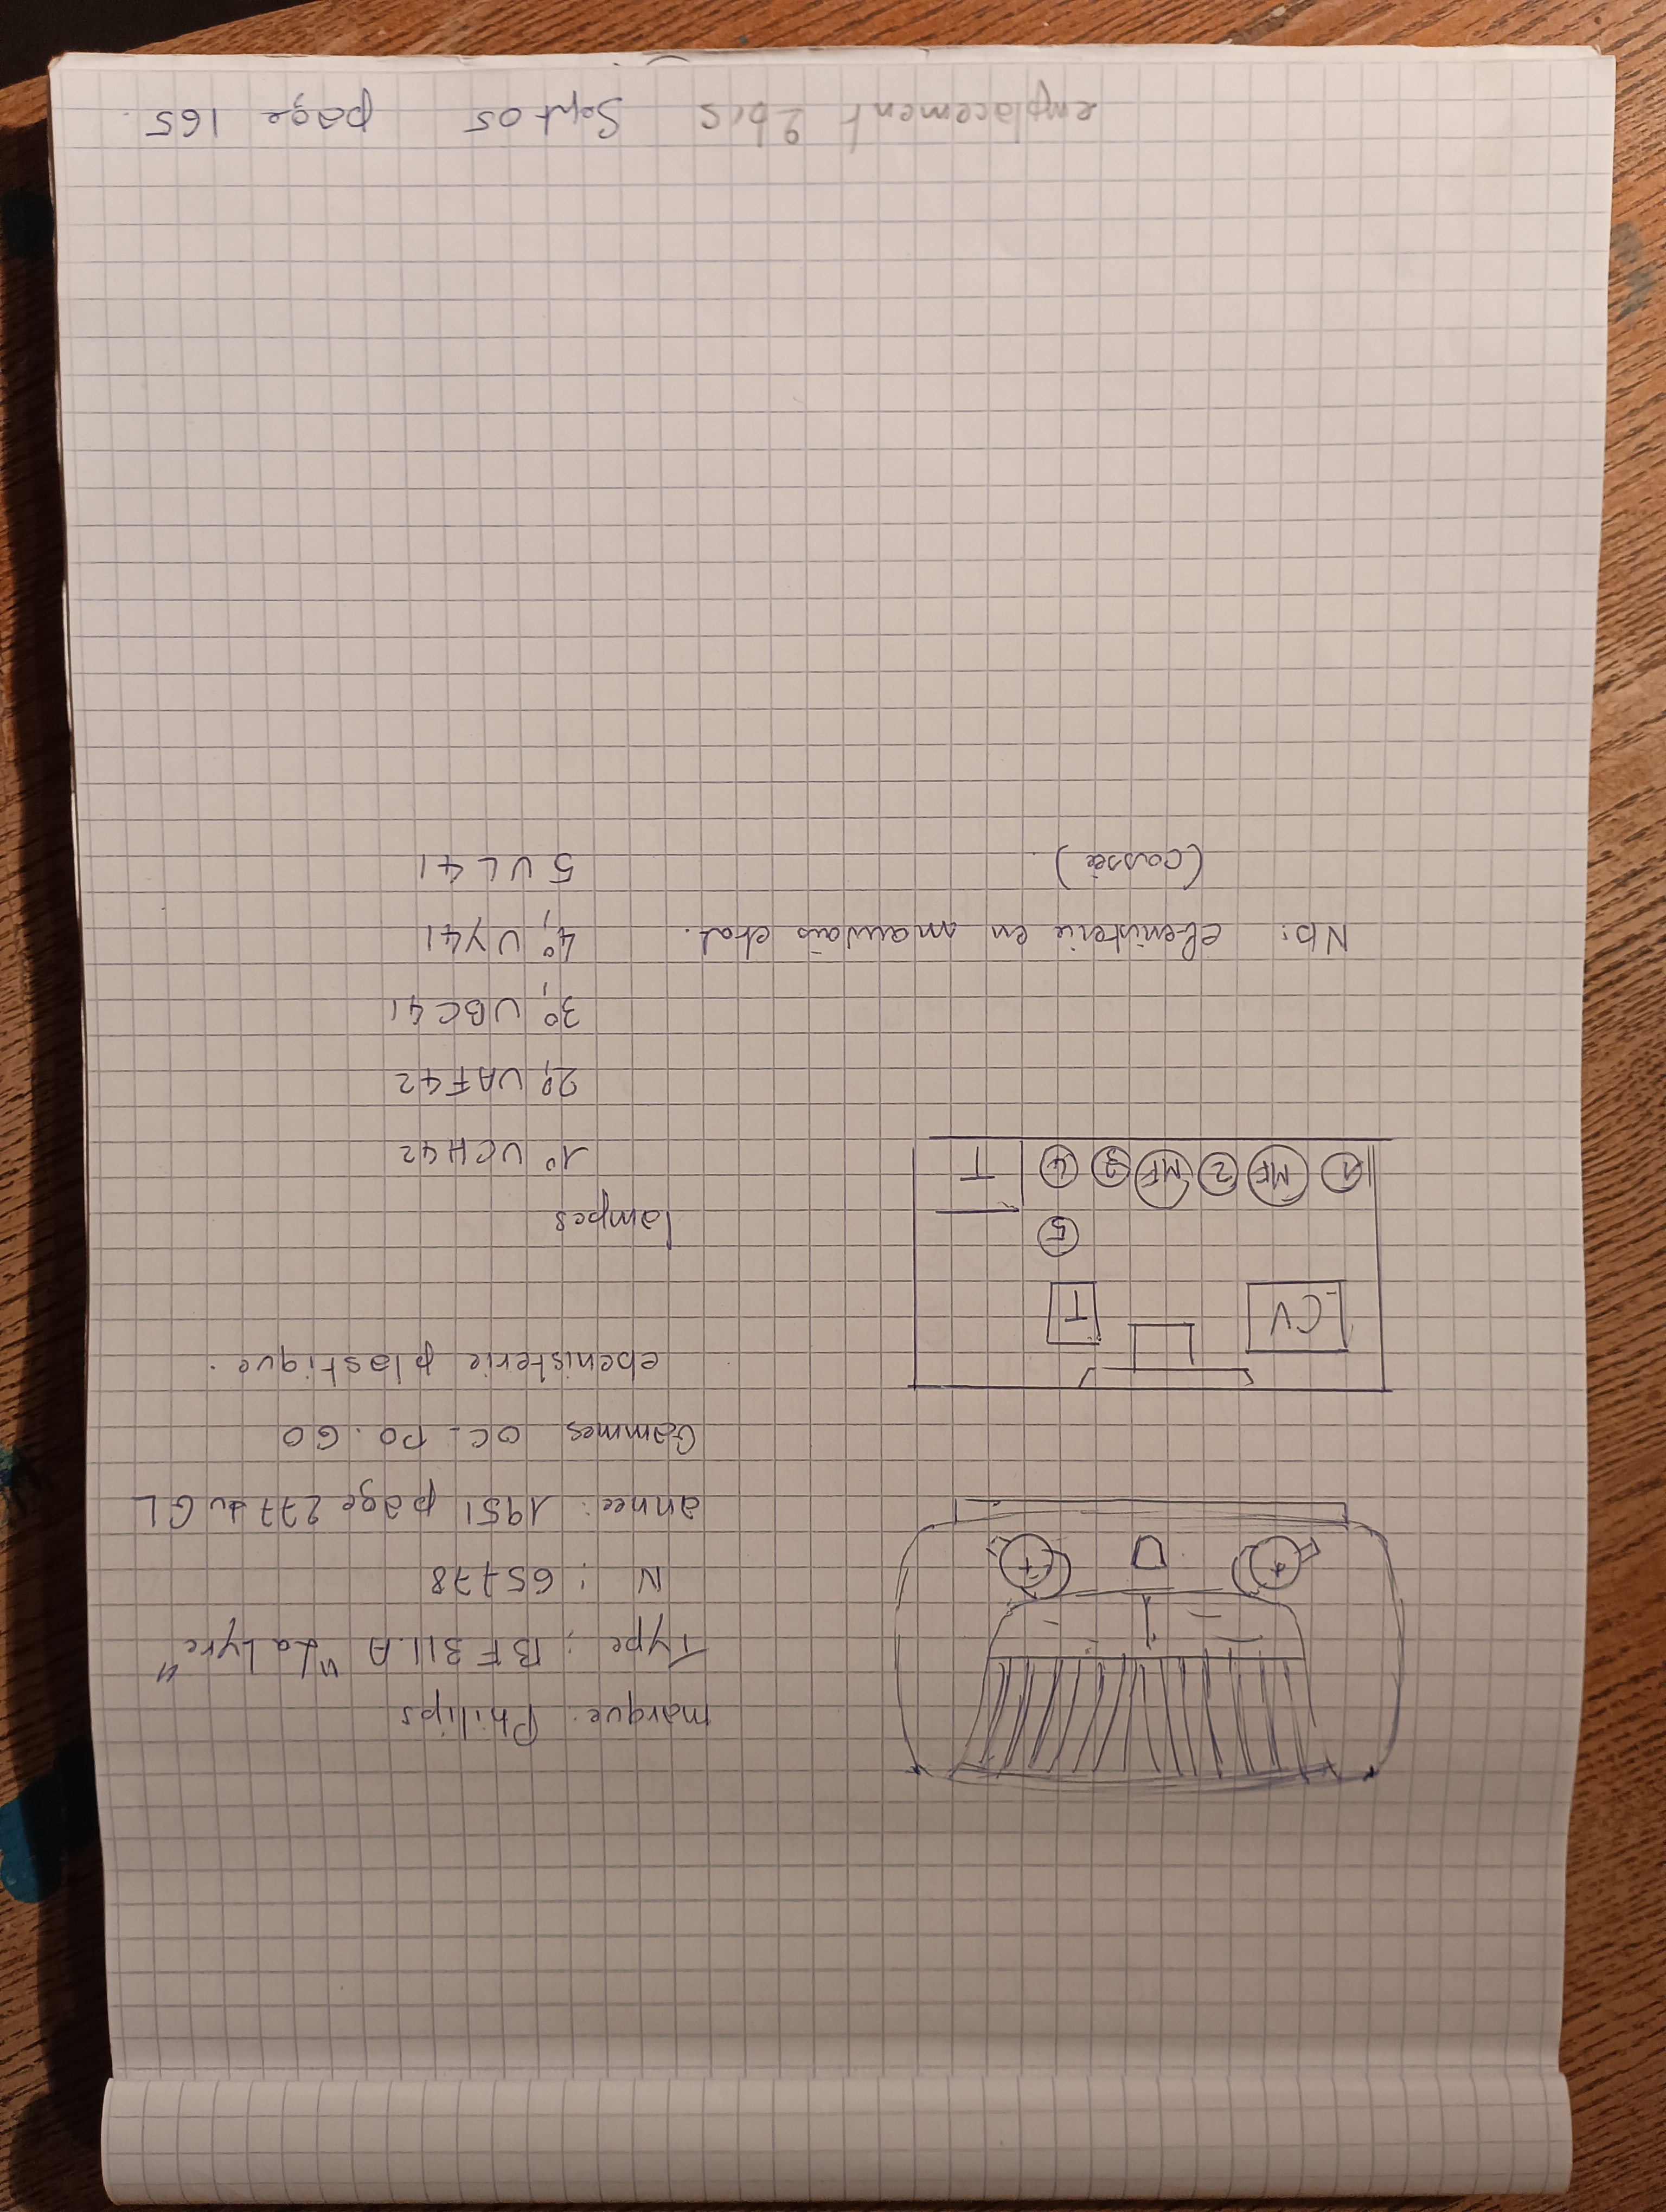 marque: Philips
Type : BF 311.A "La Lyre"
N : 65778
annee: 1951 page 277 du GL
Gammes OC - PO . GO
ebenisterie plastique.
CV
T
5
1 MF 2 MF 3 4 T
lampes
1° UCH42
2°, UAF42
3°, UBC41
4°, UY41
5 UL41
Nb: ebenisterie en mauvais etat.
(cassée).
emplacement 2bis Sept 05 page 165.